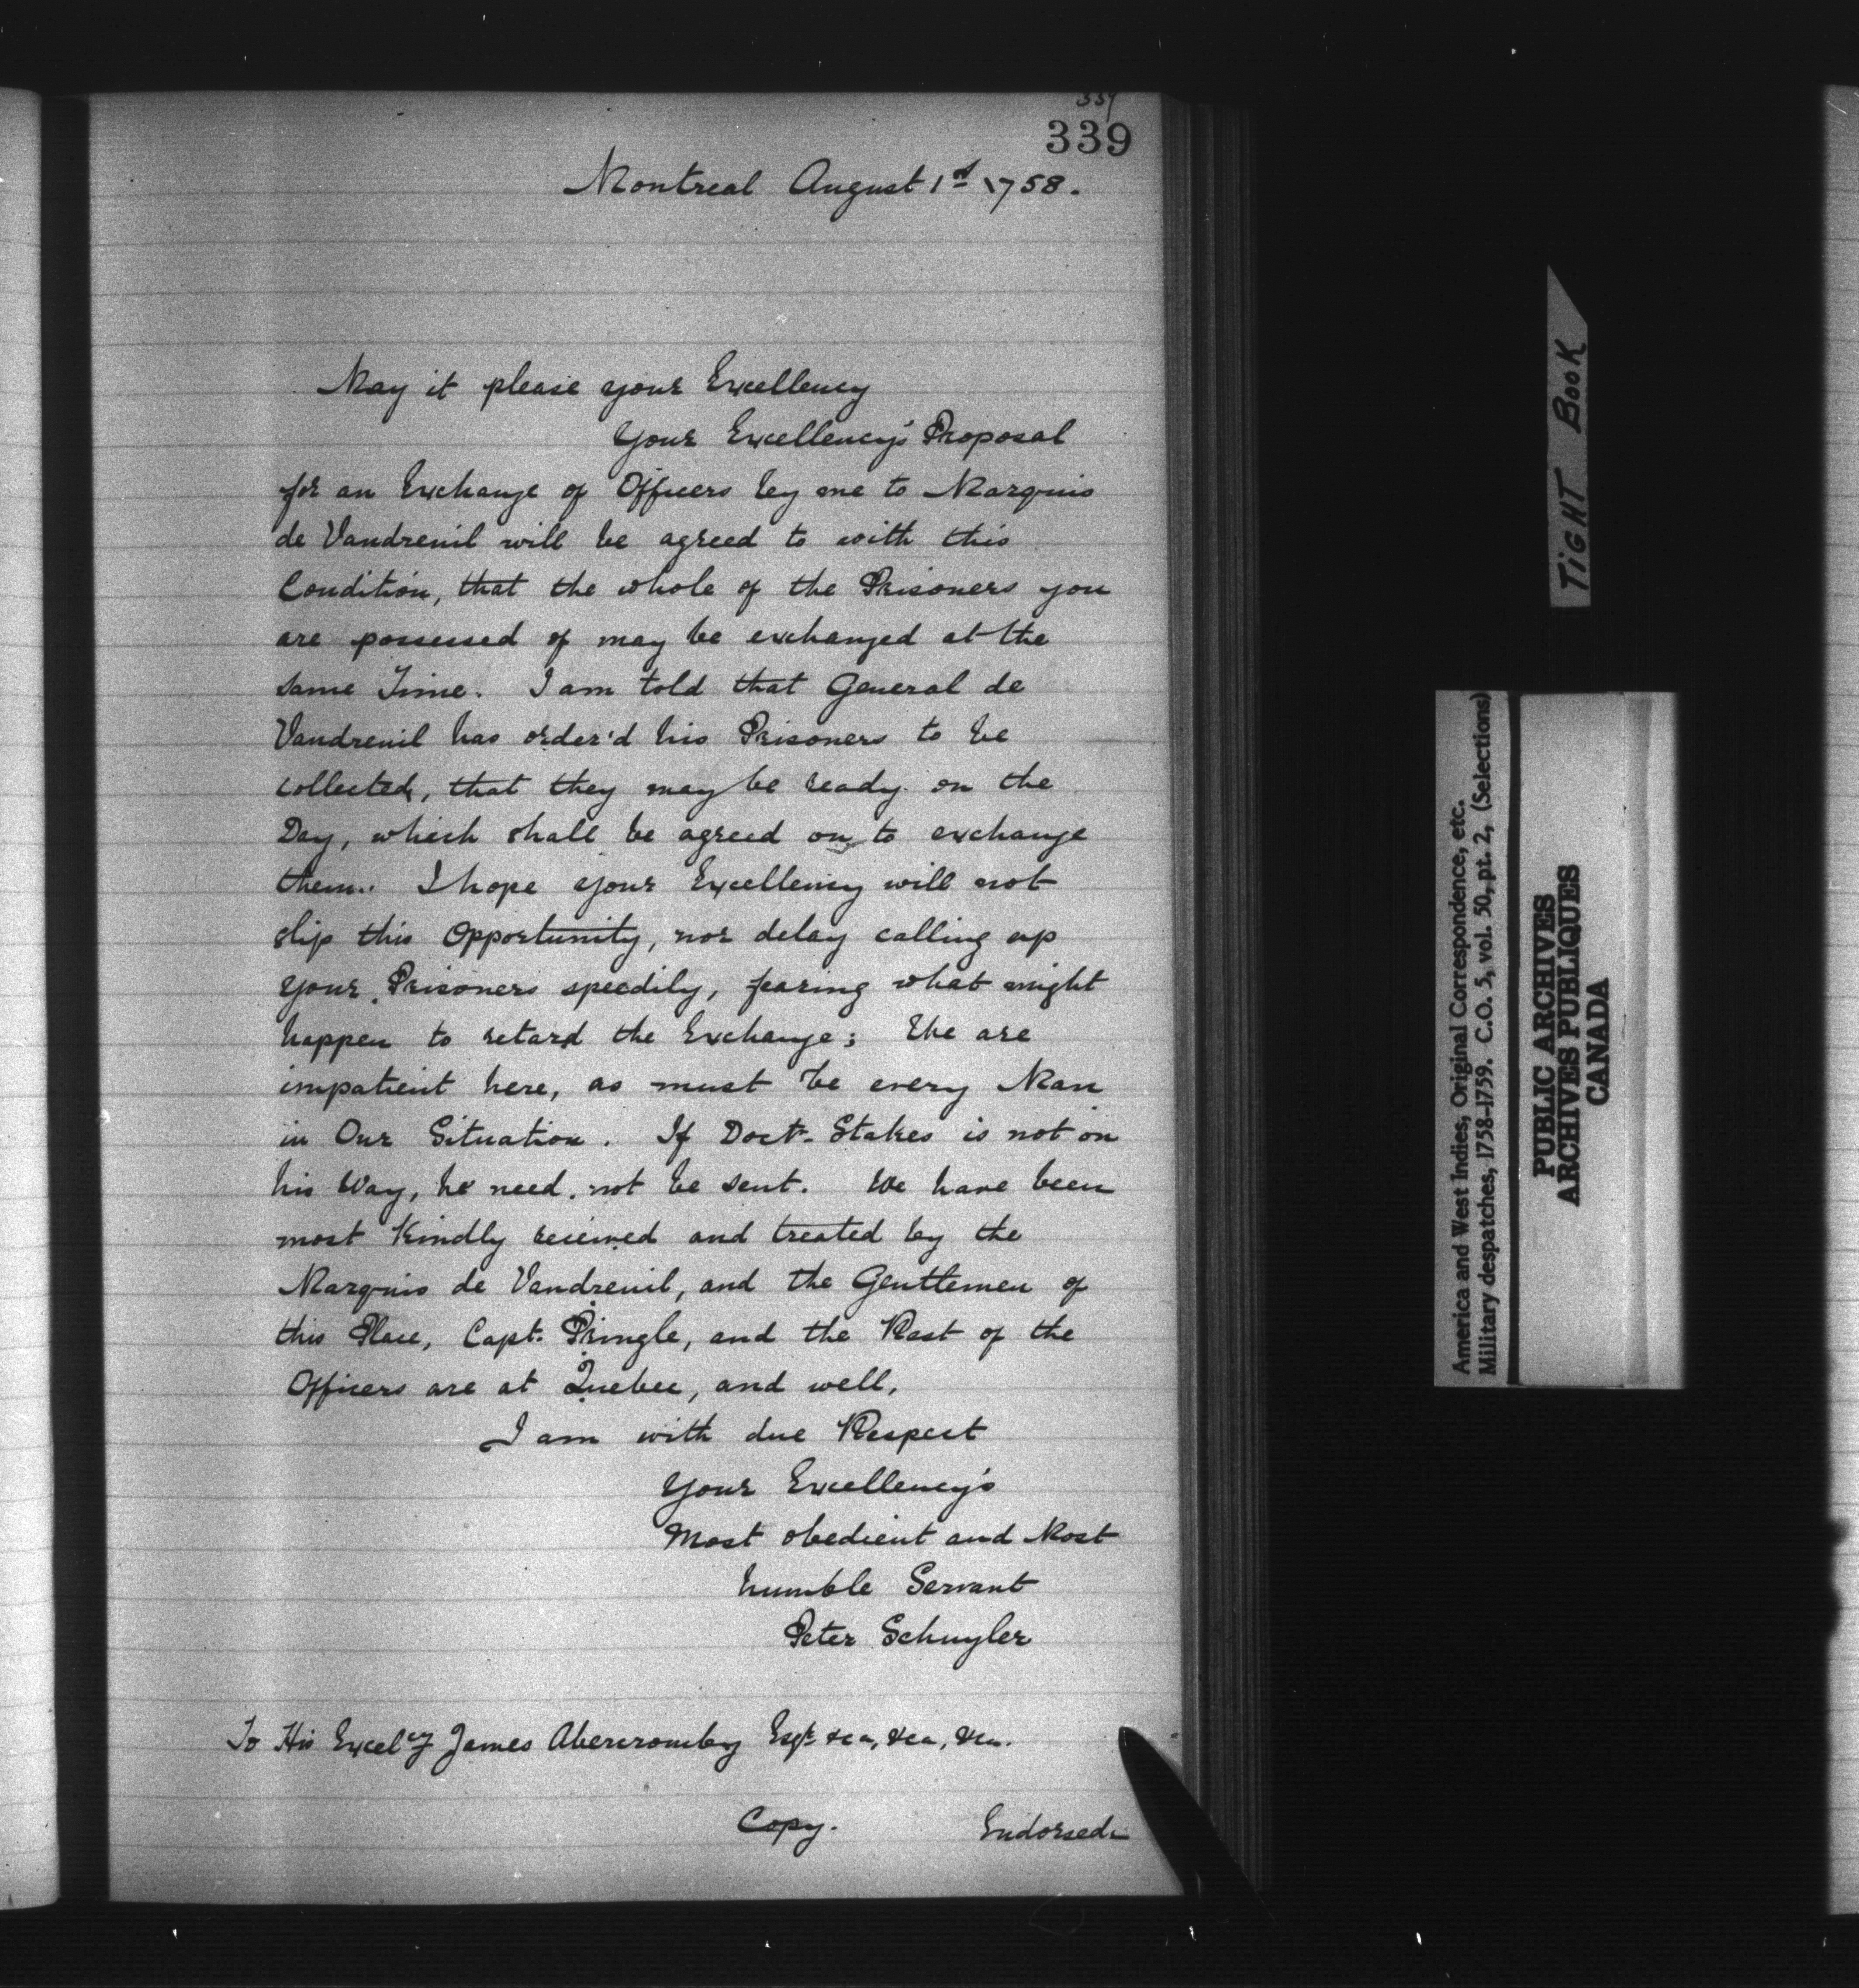 339
339
Montreal August 1st 1758.
May it please your Excellency
Your Excellency's Proposal
for an Exchange of Officers by me to Marquis
de Vandreuil will be agreed to with this
Condition, that the whole of the Prisoners you
are possessed of may be exchanged at the
same Time. I am told that General de
Vandreuil has order'd his Prisoners to be
collected, that they may be ready on the
Day, which shall be agreed on to exchange
them. I hope your Excellency will not
slip this Opportunity, nor delay calling up
your Prisoners speedily, fearing what might
happen to retard the Exchange; We are
impatient here, as must be every Man
in Our Situation. If Doctr. Stakes is not on
his Way, he need not be sent. We have been
most Kindly received and treated by the
Marquis de Vandreuil, and the Gentlemen of
this Place, Capt. Pringle, and the Rest of the
Officers are at Quebec, and well,
I am with due Respect
Your Excellency's
Most obedient and Most
humble Servant
Peter Schuyler
To His Excely James Abercromby Esqr. &ca, &ca, &ca.
Copy. Endorsed.
TIGHT BOOK
America and West Indies, Original Correspondence, etc.
Military despatches, 1758-1759. C.O. 5, vol. 50, pt. 2, (Selections)
PUBLIC ARCHIVES
ARCHIVES PUBLIQUES
CANADA